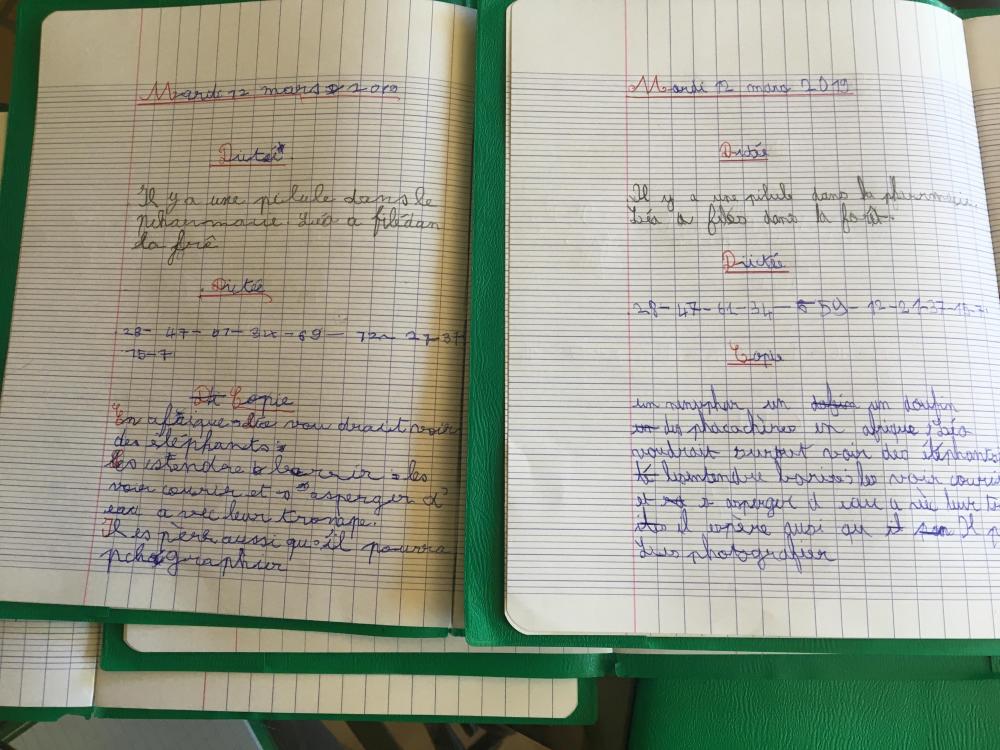 Mardi 12 mars 2019
Dictée
Il y a une pilule dans le
pharmacie Léo a filédan
la forê
Dictée
28- 47- 61- 34 -69- 72- 27-37
15-7
Copie
En afrique Léo vou drait voir
des éléphants :
les voir courir et s'asperger d'
eau a vec leur trompe.
Il es père aussi qu'il pourra
Mardi 12 mars 2019
Dictée
Il y a une pilule dans la pharmacie.
Léa a filés dans la forêt.
Dictée
28-47-61-34- 59-12-21-37-15-7
Copie
un nénuphar un un doufin
des phacachères en afrique Léo
voudrait surtout voir des éléphants
les voir courir
et s asperger d eau a vec leur
il espère qu Il p
photografier